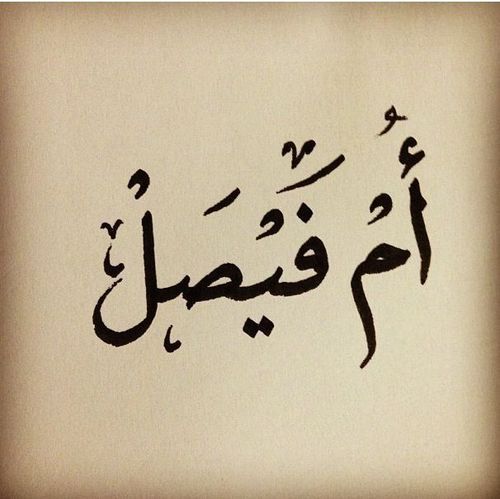 أُمْ فَيْصَلْ